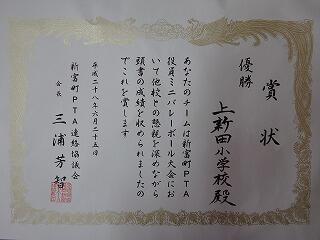 賞状
優勝
上新田小学校殿
あなたのチームは新富町PTA
役員ミニバレーボール大会にお
いて他校との懇親を深めながら
頭書の成績を収められましたの
でこれを賞します
平成二十八年六月二十五日
新富町PTA連絡協議会
会長 三浦芳智